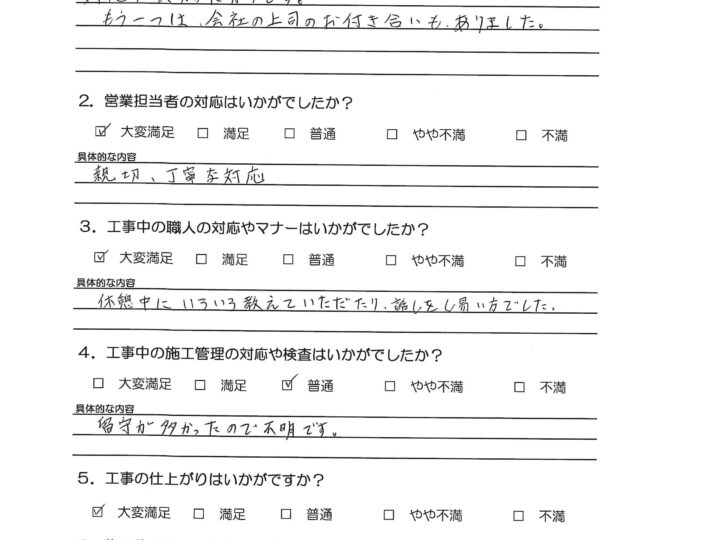 もう一つは、会社の上司のお付き合いも、ありました。
2．営業担当者の対応はいかがでしたか？
☑ 大変満足 □ 満足 □ 普通 □ やや不満 □ 不満
具体的な内容
親切、丁寧な対応
3．工事中の職人の対応やマナーはいかがでしたか？
☑ 大変満足 □ 満足 □ 普通 □ やや不満 □ 不満
具体的な内容
休憩中にいろいろ教えていただたり、話しをし易い方でした。
4．工事中の施工管理の対応や検査はいかがでしたか？
□ 大変満足 □ 満足 ☑ 普通 □ やや不満 □ 不満
具体的な内容
留守が多かったので不明です。
5．工事の仕上がりはいかがですか？
☑ 大変満足 □ 満足 □ 普通 □ やや不満 □ 不満